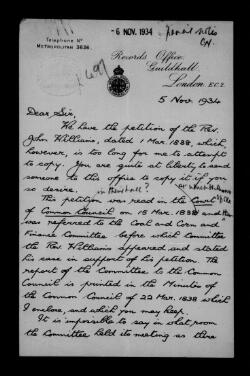 Telephone No
METROPOLITAN 3636.
- 6 NOV. 1934
Records Office,
Guildhall,
London. E.C.2.
5 Nov. 1934
Dear Sir,
We have the petition of the Rev.
John Williams, dated 1 Mar. 1838, which
however, is too long for me to attempt
to copy. You are quite at liberty to send
someone to this office to copy it if you
so desire.
This petition was read in the Court
of Common Council on 15 Mar. 1838 and
was referred to the Coal and Corn and
Finance Committee before which Committee
the Rev. Williams appeared and stated
his case in support of his petition. The
report of the Committee to the Common
Council is printed in the Minutes of
the Common Council of 22 Mar. 1838 which
I enclose, and which you may keep.
It is impossible to say in what room
the Committee held its meeting as there